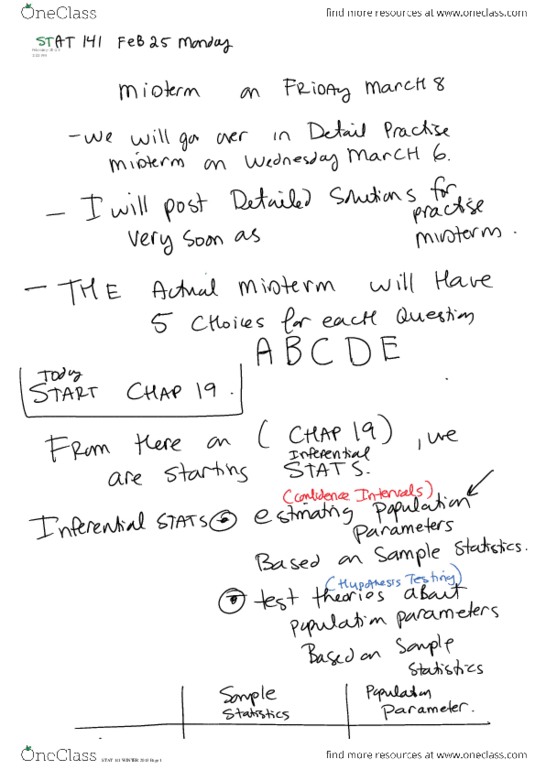 OneClass
find more resources at www.oneclass.com
STAT 141 FEB 25 Monday
midterm on FRIDAY MARCH 8
- we will go over in Detail Practise
midterm on Wednesday MARCH 6.
- I will post Detailed Solutions for
practise
very soon as
midterm.
- THE Actual midterm will Have
5 CHOICES for each Question
A B C D E
Today
START CHAP 19.
From Here on (CHAP 19), we
Inferential
are starting STATS.
(Confidence Intervals)
Inferential STATS ① estimating Population
Parameters
Based on Sample Statistics.
(Hypothesis Testing)
② test theories about
population parameters
Based on Sample
Statistics
Sample Population
Statistics Parameter.
OneClass
find more resources at www.oneclass.com